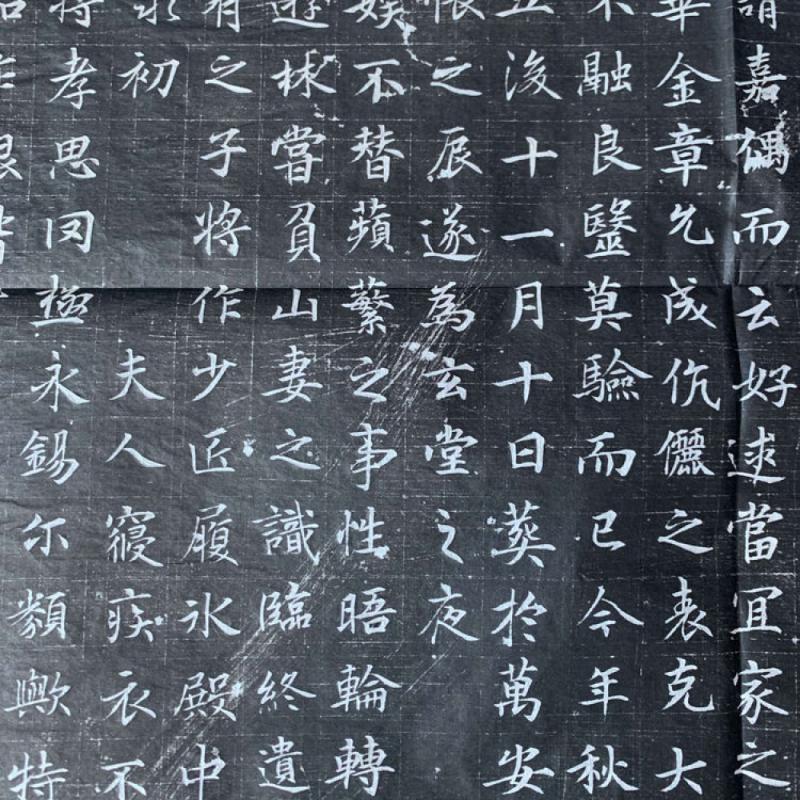 請嘉耦而云好逑當冝家之
華金章允成伉儷之表克大
不融良醫莫驗而已今年秋
五後十一月十日葬於萬安
恨之辰遂為玄堂之夜
娛不替蘋蘩之事性晤輪轉
遊嘗負山妻之識臨終遺
有之子將作少匠履氷殿中
永初 夫人寢疾衣不
將孝思罔極永錫尒類歟特